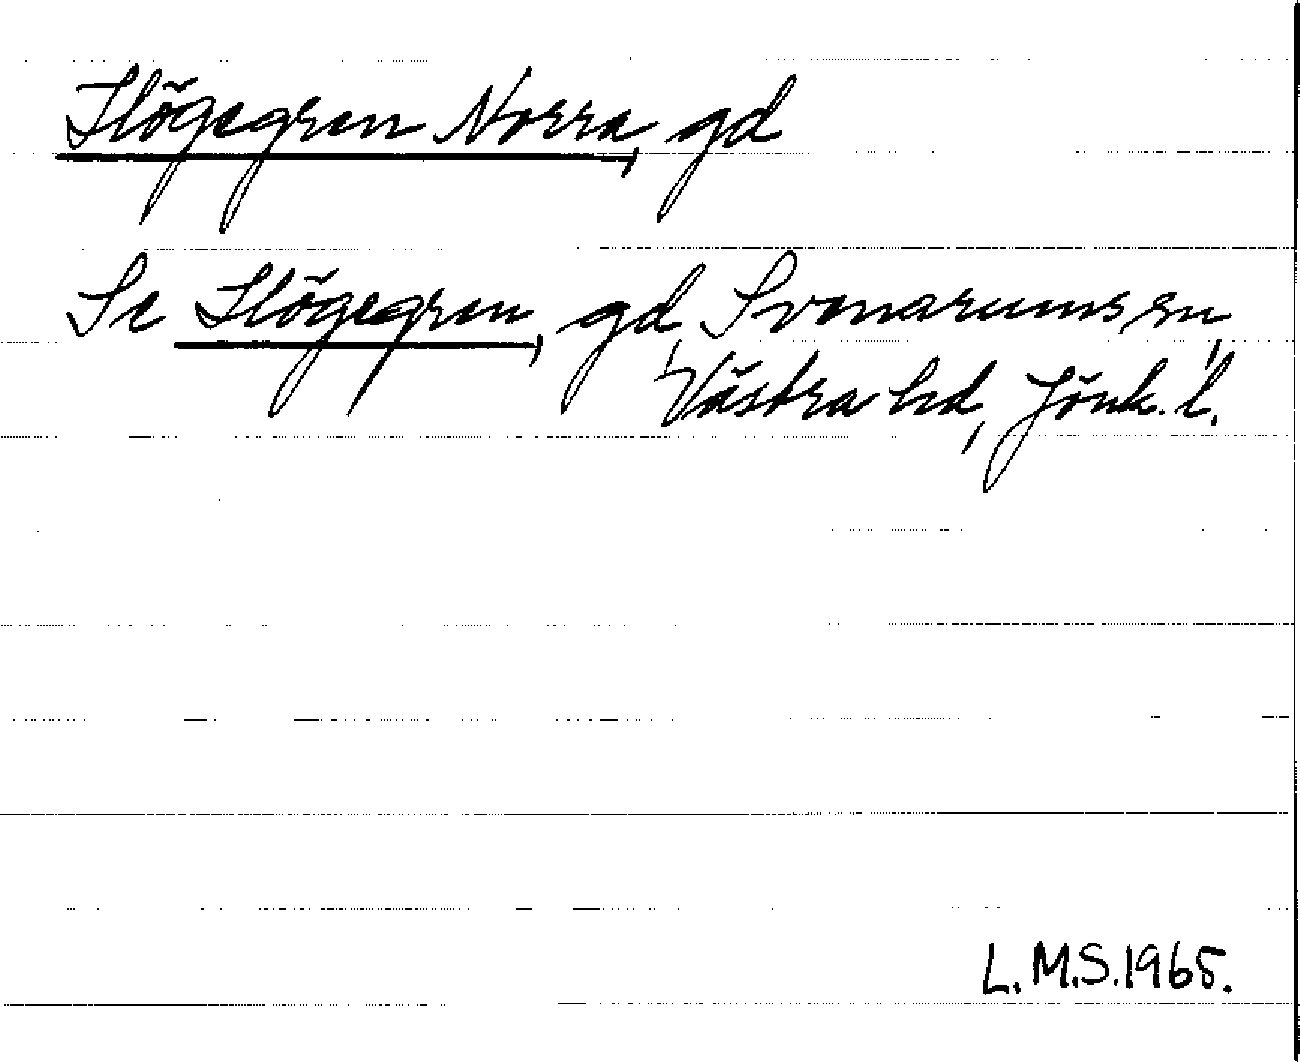 Högegren Norra, gd
Se Högegren, gd, Svenarums sn,
Västra hd, Jönk. l.
L.M.S.1965.